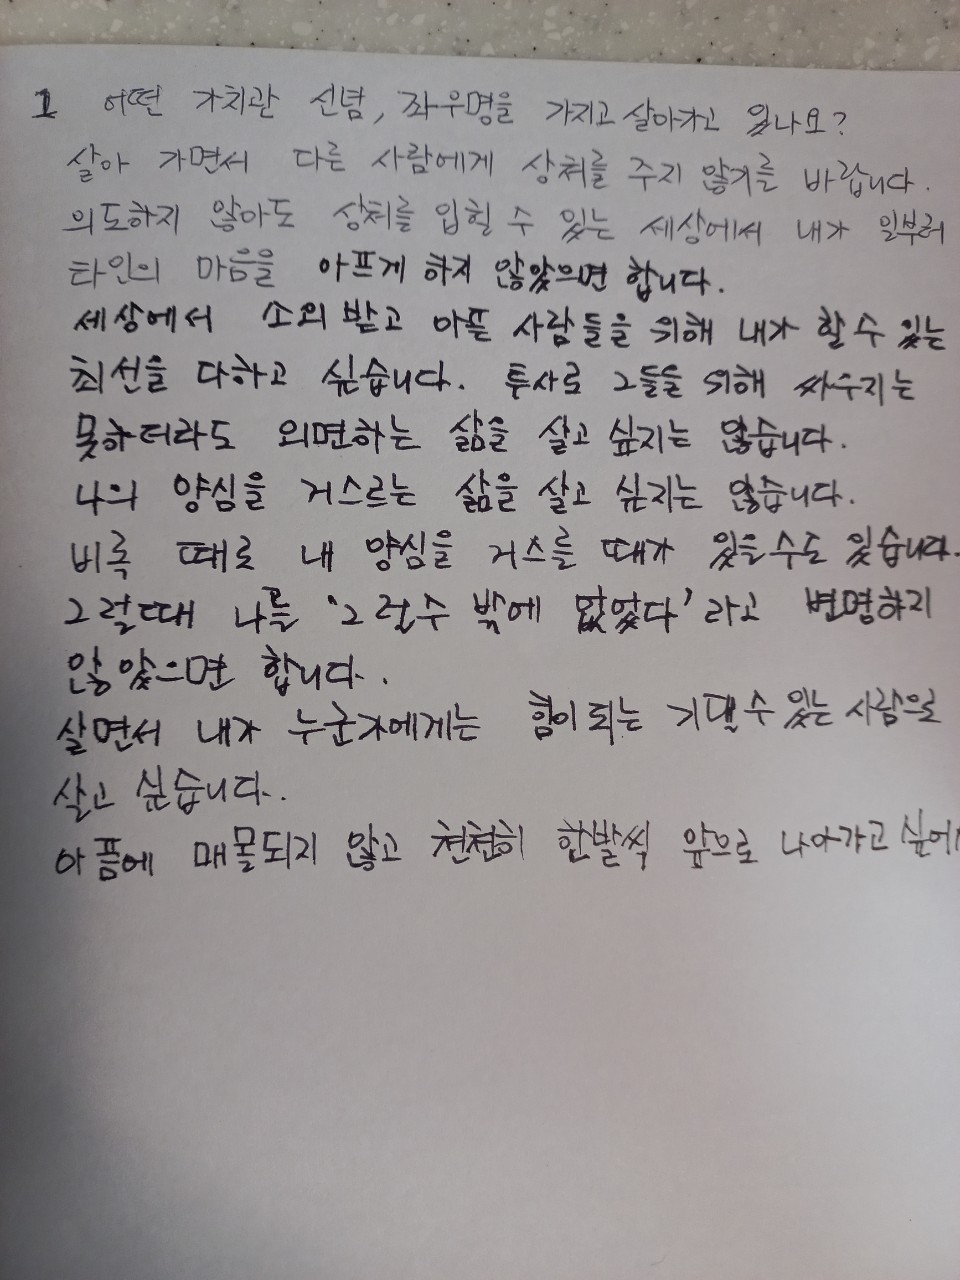 1 어떤 가치관 신념, 좌우명을 가지고 살아가고 있나요?
살아 가면서 다른 사람에게 상처를 주지 않기를 바랍니다.
의도하지 않아도 상처를 입힐 수 있는 세상에서 내가 일부러
타인의 마음을 아프게 하지 않았으면 합니다.
세상에서 소외 받고 아픈 사람들을 위해 내가 할 수 있는
최선을 다하고 싶습니다. 투사로 그들을 위해 싸우지는
못하더라도 외면하는 삶을 살고 싶지는 않습니다.
나의 양심을 거스르는 삶을 살고 싶지는 않습니다.
비록 때로 내 양심을 거스를 때가 있을수도 있습니다.
그럴때 나를 '그럴수 밖에 없었다'라고 변명하지
않았으면 합니다.
살면서 내가 누군가에게는 힘이 되는 기댈 수 있는 사람으로
살고 싶습니다.
아픔에 매몰되지 않고 천천히 한발씩 앞으로 나아가고